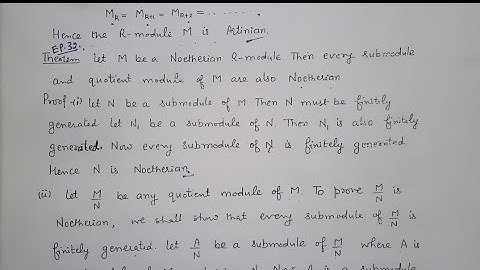 M_k = M_{k+1} = M_{k+2} = ........
Hence the R-module M is Artinian.
EP.32.
Theorem let M be a Noetherian R-module. Then every submodule
and quotient module of M are also Noetherian
Proof-(i) let N be a submodule of M Then N must be finitely
generated let N₁ be a submodule of N. Then N₁ is also finitely
generated. Now every submodule of N is finitely generated
Hence N is Noetherian.
(ii) Let M/N be any quotient module of M. To prove M/N is
Noetherian, we shall show that every submodule of M/N is
finitely generated. let A/N be a submodule of M/N where A is
is a submodule